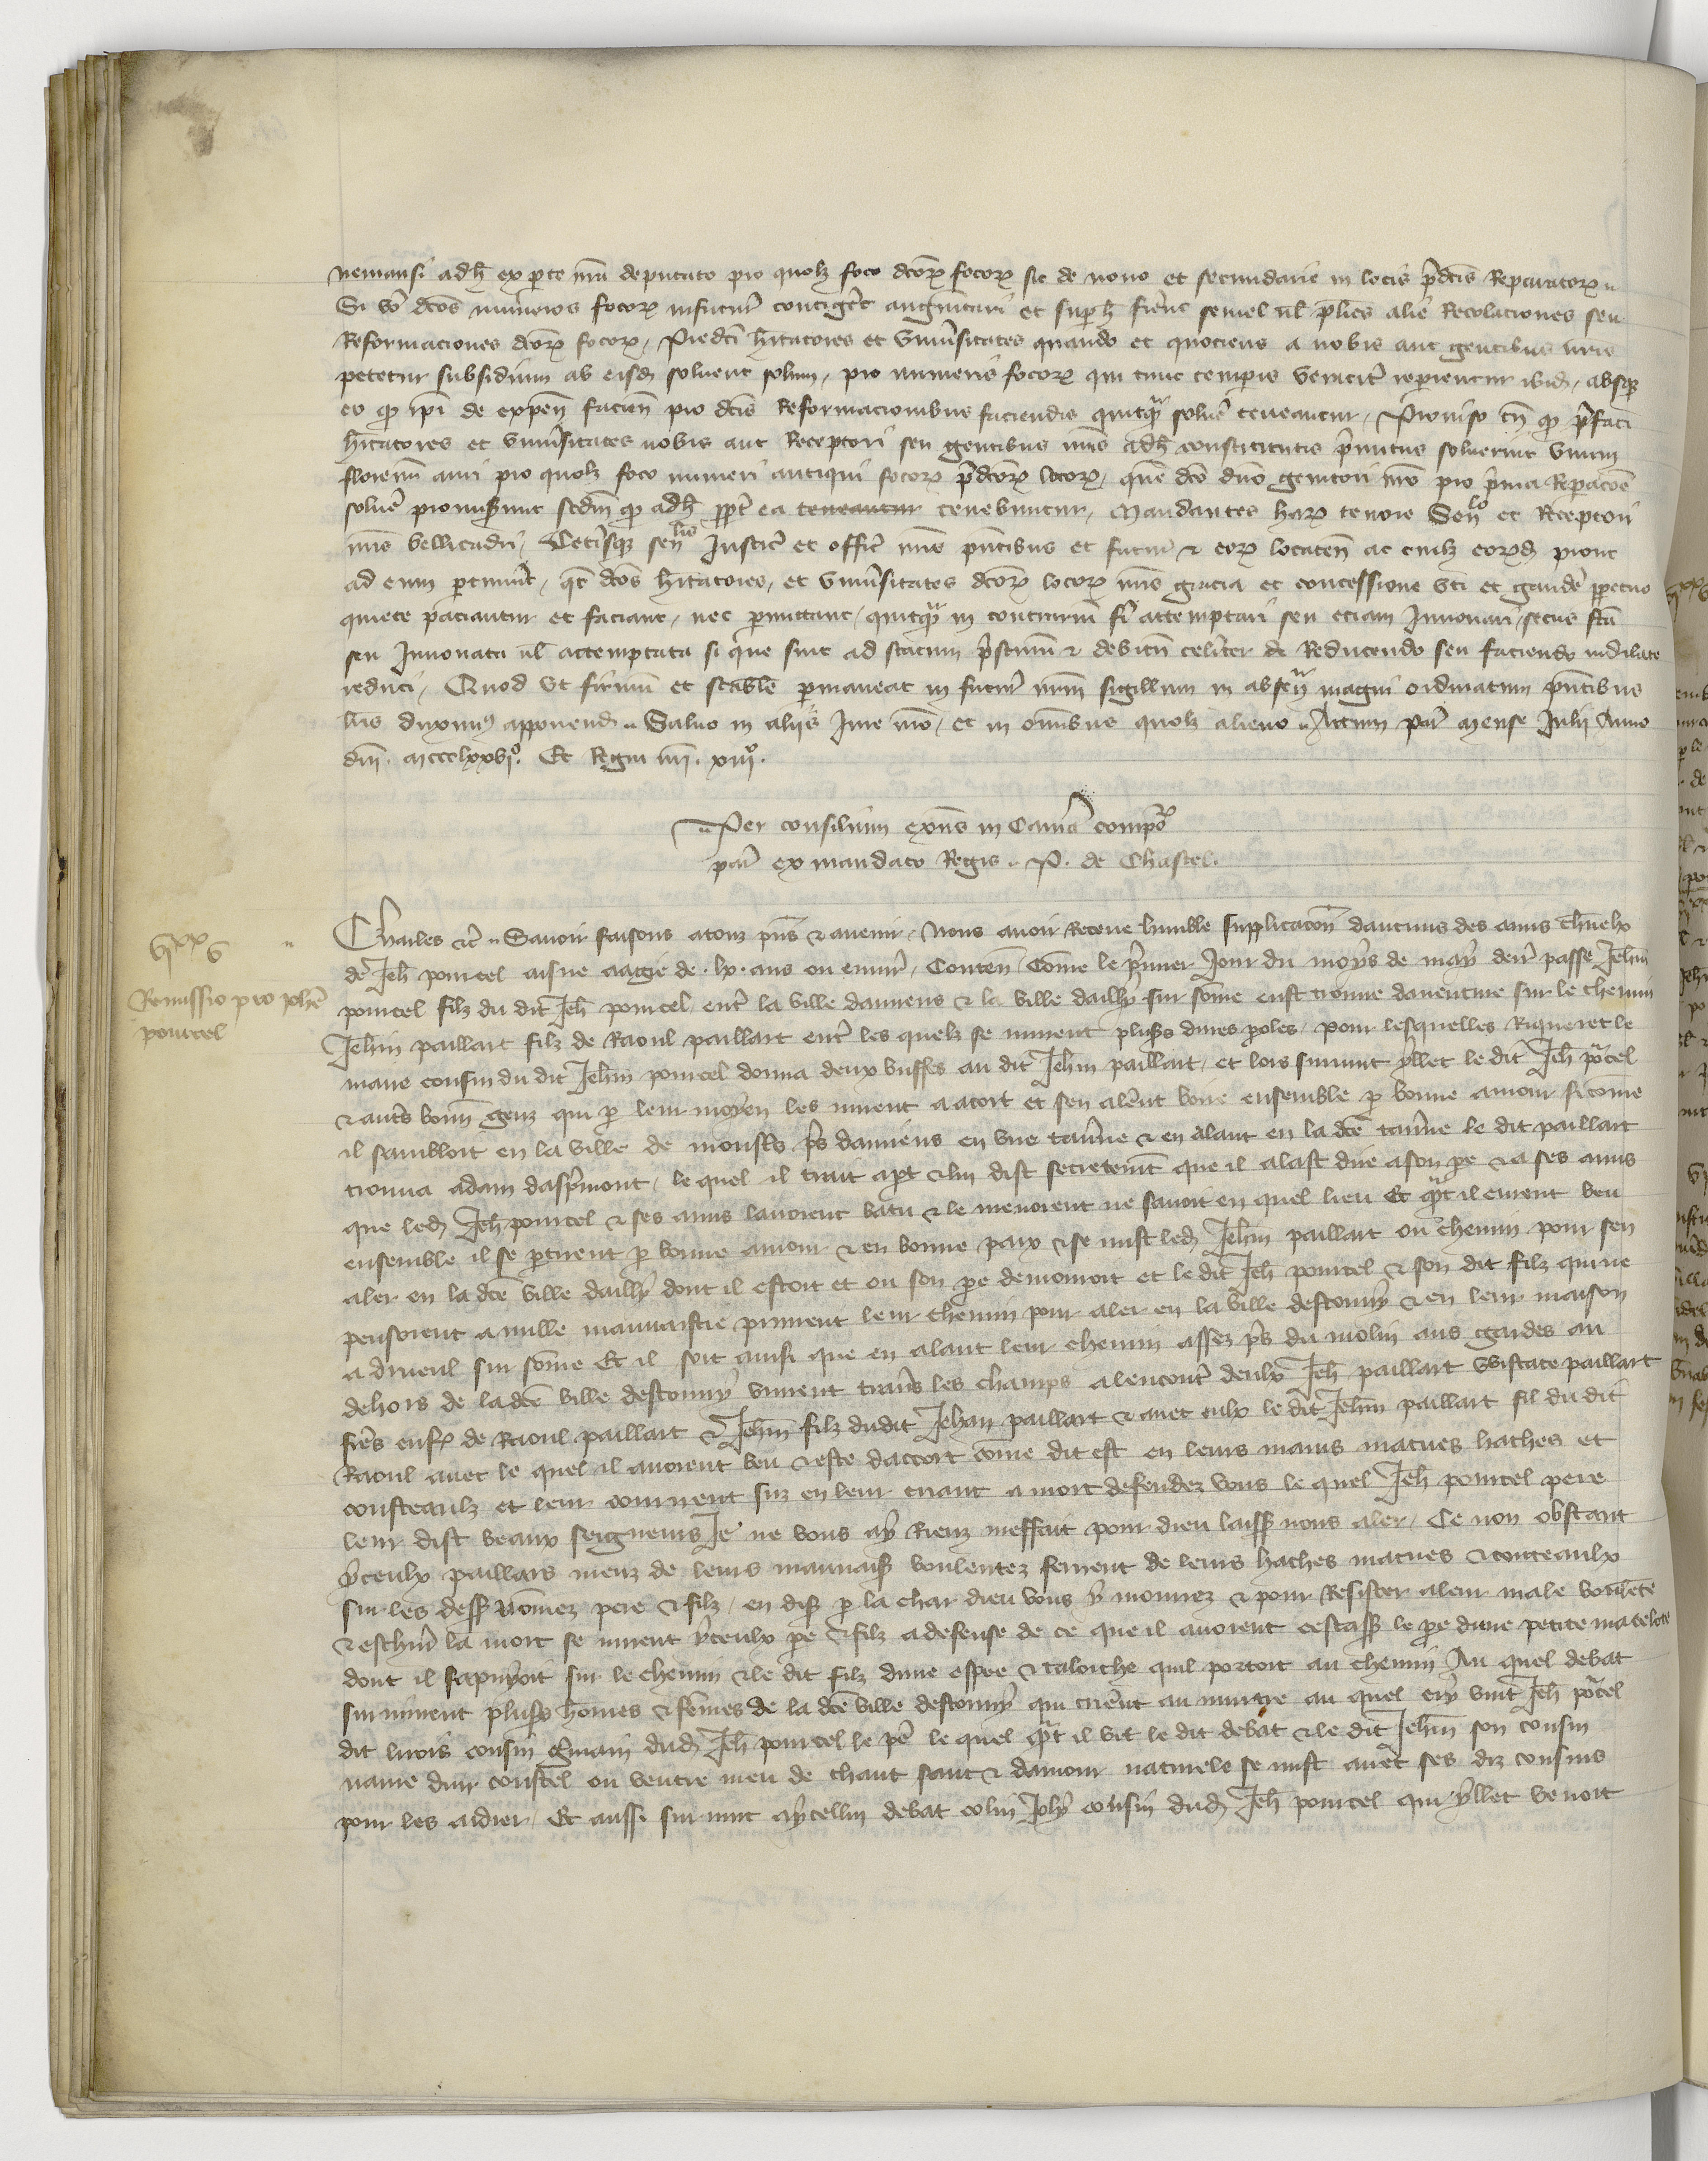 nemausi adh ex parte nra deputato pro quolz foco dcorz focorz sic de novo et secundarie in locis pdcis Reparatorz
Si vo dcos numeros focorz infutur contigerit augmentari et suph fieri semel vl plies alie Recolaciones seu
Reformaciones dcorz focorz, Predci hitatores et vniusitates quando et quociens a nobis aut gentibus nris
petetur subsidium ab eisd solvent solum, pro numeris focorz qui tunc temporis veracit reperientur ibid, absqz
eo qd ipi de expen facien pro dcis Reformacionibus faciendis quitqm solue teneantur, Proviso tn qd pfati
hitatores et vniusitates nobis aut Receptori seu gentibus nris adh constitutis primitus solverint vnum
florenum auri pro quolz foco numeri antiqui focorz pdcorz locorz, que dco dno genitori nro pro prima Repacoe
solue promiserunt scdm qd adh ppt ea teneantur tenebuntur, Mandantes harz tenore Senlo et Receptori
nris bellicadri, Ceterisqz senllis Justic et offic nris pntibus et futur & eorz locaten ac cuilz eorzd prout
ad eum ptinuit, qt dcos hitatores, et vniusitates dcorz locorz nris gracia et concessione vti et gaude ppetuo
quiete paciantur et faciant, nec pmittant, quitqm in contrarium fi attemptari seu etiam Innovari, secus fca
seu Innovata vl attemptata si que sint ad statum pstinum & debitum celiter de Reducendo seu faciendo indilate
reduci, Quod vt firmum et stabile pmaneat in futur nrm sigillum in absencia magni ordinatum pntibus
lris duximus apponend Salvo in aliis Jure nro, et in omibus quolz alieno Actum par mense Julii Anno
dni mccclxxvjo. Et Regni nri. xiijo.
Per consilium exns in Camera compo
par ex mandato Regis. P. de Chastel.
Charles etc Savoir faisons atouz pns & avenir, Nous avoir Receue humble supplicacon daucuns des amis charnelx
de Jeh pourcel aisne aagie de .lx. ans ou envir, Conten Come le primier Jour du moys de may der passe Jehin
pourcel filz du dit Jeh pourcel, ent la ville damiens & la ville dailly sur some eust trouve daventure sur le chemin
Jehin paillart filz de Raoul paillart ent les quelz se murent plusrs dures poles, pour lesquelles Riqueret le
mave cousin du dit Jehin pourcel donna deux buffes au dit Jehin paillart, et lors survint yllec le dit Jeh pourcel
& auts bonn genz qui p leur moyen les mirent a acort et sen alerent boire ensemble p bonne amour si come
il sambloit en la ville de monsts ps damiens en vne taverne & en alant en la dce taverne le dit paillart
trouva adam daspremont, le quel il trait apt & lui dist secretement que il alast dire a son pe & a ses amis
que led Jeh pourcel & ses amis lavoient batu & le menoient ne savoit en quel lieu Et quant il eurent beu
ensemble il se ptirent p bonne amour & en bonne paix & se mist led Jehin paillart ou chemin pour sen
aler en la dce ville dailly dont il estoit et ou son pe demouroit et le dit Jeh pourcel & son dit filz qui ne
pensoient a nulle mauvaistie prinrent leur chemin pour aler en la ville destouvy & en leur maison
a dreuil sur some Et il soit ainsi que en alant leur chemin assez ps du molin aus gardes au
dehors de ladce ville destouvy vinrent travers les champs alencont deulx Jeh paillart Wistace paillart
freres enfs de Raoul paillart & Jehin filz dudit Jehan paillart & avec eulx le dit Jehin paillart fil du dit
Raoul avec le quel il avoient beu & este daccort come dit est en leurs mains macues haches et
cousteaulz et leur coururent suz en leur criant a mort defendez vous le quel Jeh pourcel pere
leur dist beaux seigneurs Je ne vous ay Rienz meffait pour dieu laissz nous aler, Ce non obstant
yceulx paillars meuz de leurs mauvaises voulentez ferirent de leurs haches macues & couteaulx
sur les dess nomez pere & filz, en dis p la char dieu vous y mourrez & pour Resister a leur male voulente
& eschiver la mort se mirent yceulx pe & filz a defense de ce que il avoient cestass le pe dune petite matelote
dont il sapuyoit sur le chemin & le dit filz dune espee & taloiche quil portoit au chemin Au quel debat
survinrent plusrs homes & femes de la dce ville destouvy qui crierent au murtre au quel cry vint Jeh pourcel
dit lirois cousin Gmain dud Jeh pourcel le pe le quel qt il vit le dit debat & le dit Jehin son cousin
navre dun coustel ou ventre meu de chaut sanc & damour naturele se mist avec ses diz cousins
pour les aidier, Et aussi survint aycellui debat colin Joly cousin dud Jeh pourcel qui yllec venoit
Remissio pro Johe
pourcel